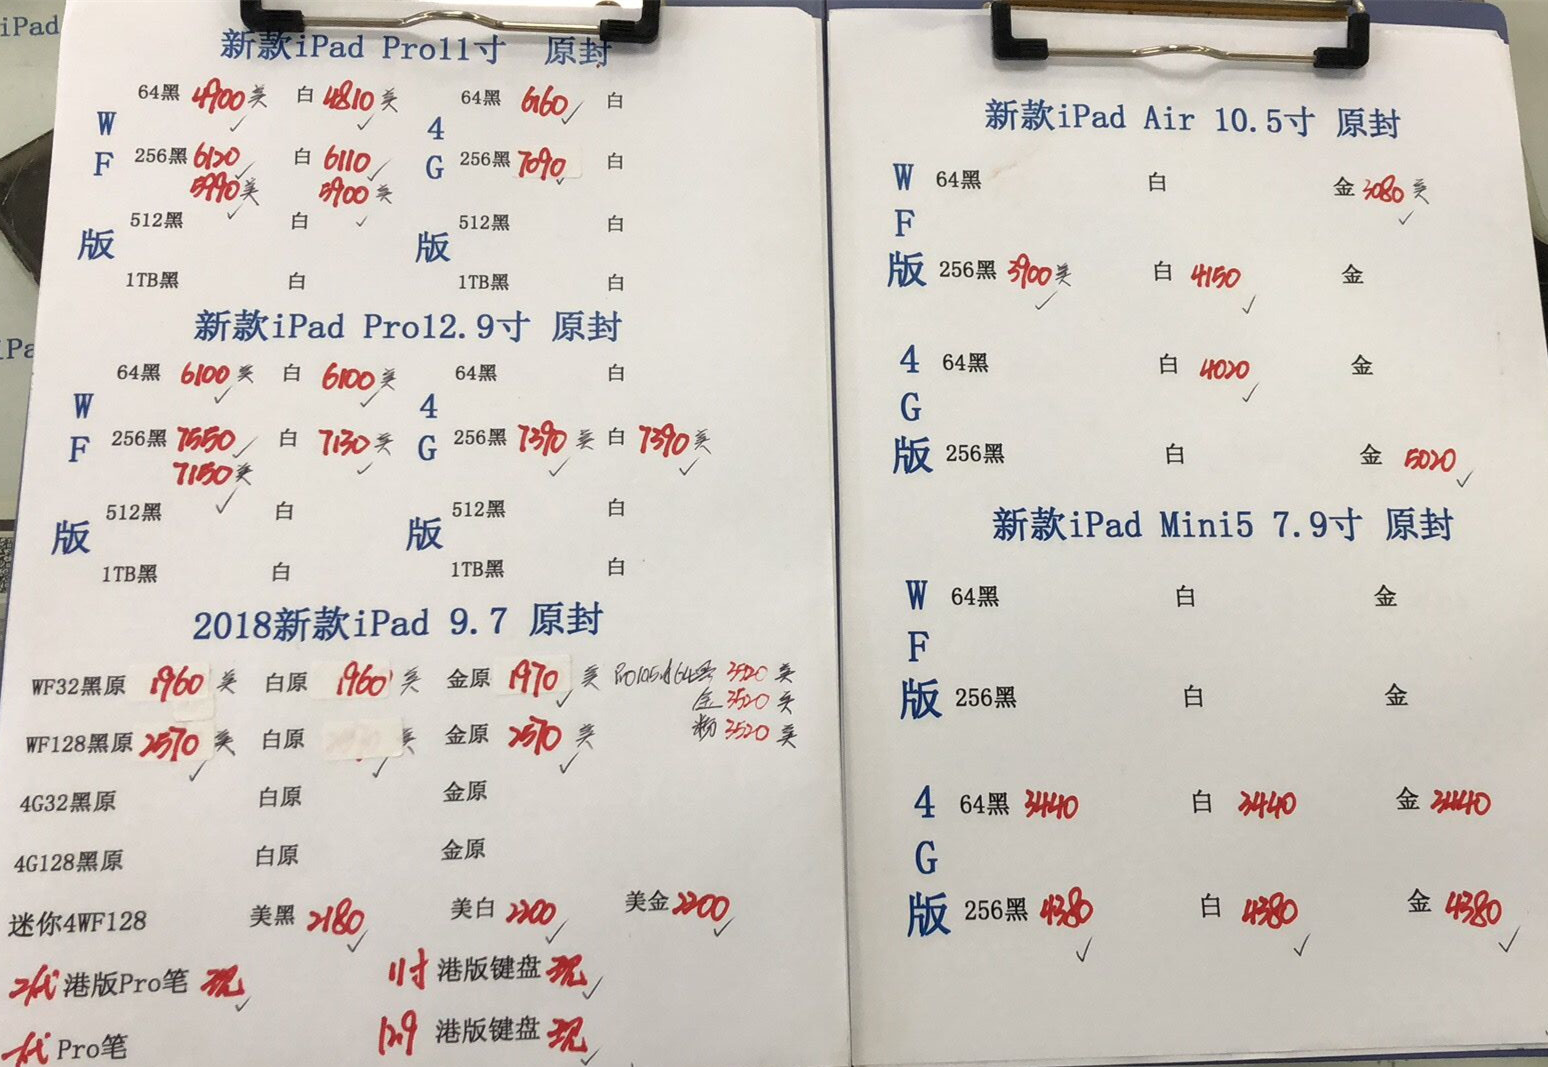 iPad
新款iPad Pro11寸 原封
64黑 4900美 白 4810美 64黑 6160 白
W 4
F 256黑 6120 白 6110 G 256黑 7090 白
5990美 5900美
512黑 白 512黑 白
版 版
1TB黑 白 1TB黑 白
新款iPad Pro12.9寸 原封
iPa
64黑 6100美 白 6100美 64黑 白
W 4
F 256黑 7550 白 7130美 G 256黑 7390美 白 7390美
7150美
512黑 白 512黑 白
版 版
1TB黑 白 1TB黑 白
2018新款iPad 9.7 原封
WF32黑原 1960美 白原 1960美 金原 1970美 3520美
金 3520美
粉 3520美
WF128黑原 2570美 白原 美 金原 2570美
4G32黑原 白原 金原
4G128黑原 白原 金原
迷你4WF128 美黑 2180 美白 2200 美金 2200
2代 港版Pro笔 现 11寸 港版键盘 现
一代 Pro笔 12.9 港版键盘 现
新款iPad Air 10.5寸 原封
W 64黑 白 金 3080美
F
版 256黑 3900美 白 4150 金
4 64黑 白 4020 金
G
版 256黑 白 金 5020
新款iPad Mini5 7.9寸 原封
W 64黑 白 金
F
版 256黑 白 金
4 64黑 3440 白 3440 金 3440
G
版 256黑 4380 白 4380 金 4380